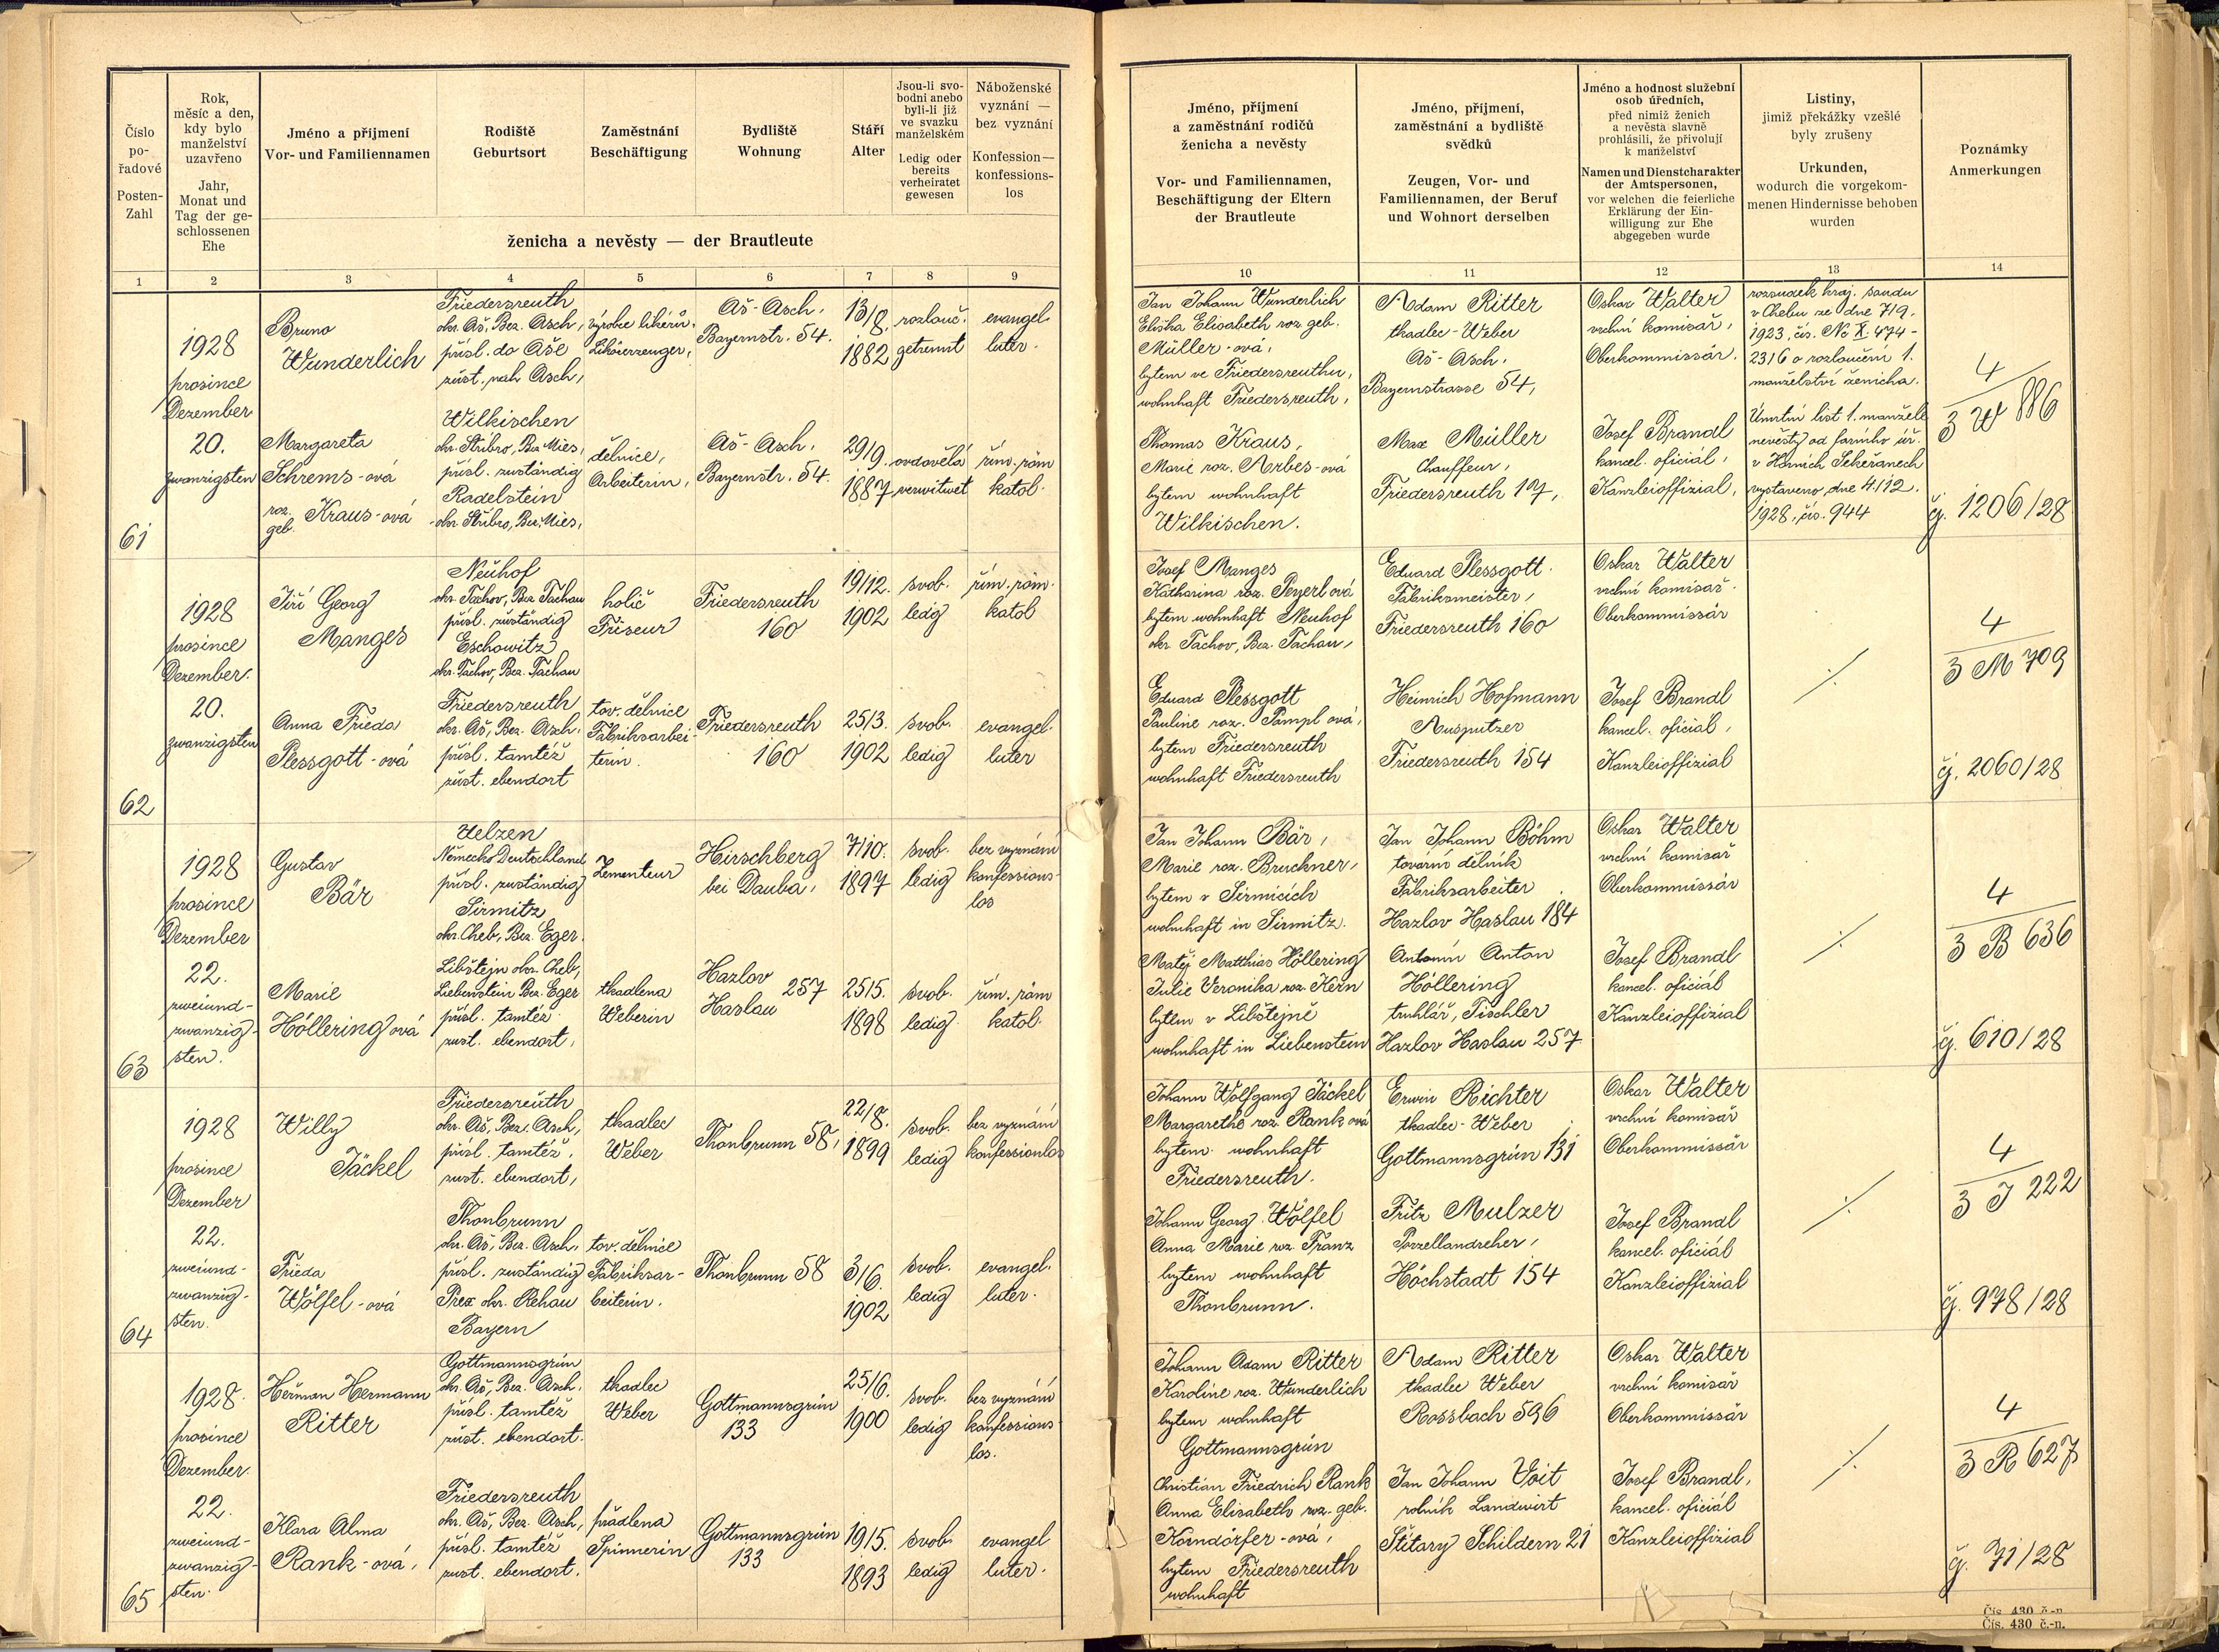 Číslo
po-
řadové
Posten-
Zahl
Rok,
měsíc a den,
kdy bylo
manželství
uzavřeno
Jahr,
Monat und
Tag der ge-
schlossenen
Ehe
Jméno a příjmení
Vor- und Familiennamen
Rodiště
Geburtsort
Zaměstnání
Beschäftigung
Bydliště
Wohnung
Stáří
Alter
Jsou-li svo-
bodni anebo
byli-li již
ve svazku
manželském
Ledig oder
bereits
verheiratet
gewesen
Náboženské
vyznání —
bez vyznání
Konfession—
konfessions-
los
ženicha a nevěsty — der Brautleute
Jméno, příjmení
a zaměstnání rodičů
ženicha a nevěsty
Vor- und Familiennamen,
Beschäftigung der Eltern
der Brautleute
Jméno, příjmení,
zaměstnání a bydliště
svědků
Zeugen, Vor- und
Familiennamen, der Beruf
und Wohnort derselben
Jméno a hodnost služební
osob úředních,
před nimiž ženich
a nevěsta slavně
prohlásili, že přivolují
k manželství
Namen und Dienstcharakter
der Amtspersonen,
vor welchen die feierliche
Erklärung der Ein-
willigung zur Ehe
abgegeben wurde
Listiny,
jimiž překážky vzešlé
byly zrušeny
Urkunden,
wodurch die vorgekom-
menen Hindernisse behoben
wurden
Poznámky
Anmerkungen
1 2 3 4 5 6 7 8 9 10 11 12 13 14
61
1928
prosince
Dezember
20.
zwanzigsten
Bruno
Wunderlich
Friedersreuth
okr. Aš, Bez. Asch,
přísl. do Aše
zúst. nah Asch,
výrobce likérů,
Likörerzeuger,
Aš-Asch,
Bayernstr. 54.
13/8.
1882
rozlouč.
getrennt
evangel.
luter.
Margareta
Schrems-ová
roz.
geb. Kraus-ová
Wilkischen
okr. Stříbro, Bez. Mies,
přísl. zuständig
Radelstein
okr. Stříbro, Bez. Mies,
dělnice,
Arbeiterin,
Aš-Asch,
Bayernstr. 54.
29/9.
1887
ovdovělá
verwitwet
řím. röm
katol.
Jan Johann Wunderlich
Eliška Elisabeth roz. geb.
Müller-ová,
bytem ve Friedersreuthu,
wohnhaft Friedersreuth,
Thomas Kraus,
Marie roz. Arbes-ová
bytem wohnhaft
Wilkischen.
Adam Ritter
tkadlec-Weber
Aš-Asch,
Bayernstrasse 54,
Max Müller
Chauffeur,
Friedersreuth 17,
Oskar Walter
vrchní komisař,
Oberkommissär.
Josef Brandl
kancel. oficiál,
Kanzleioffizial,
rozsudek kraj. soudu
v Chebu ze dne 7/9.
1923, čís. Nc X. 474-
23/6 o rozloučení 1.
manželství ženicha.
Úmrtní list 1. manžela
nevěsty od farního úř.
v Horních Sekeřanech
vystaveno, dne 4./12.
1928, čís. 944
4
3 W 886
čj. 1206/28
62
1928
prosince
Dezember.
20.
zwanzigsten
Jiří Georg
Manges
Neuhof
okr. Tachov, Bez. Tachau
přísl. zuständig
Eschowitz
okr. Tachov, Bez. Tachau
holič
Friseur
Friedersreuth
160
19/12.
1902
svob.
ledig
řím. röm.
katol
Anna Frieda
Plessgott-ová
Friedersreuth
okr. Aš, Bez. Asch,
přísl. tamtéž
zust. ebendort
tov. dělnice
Fabriksarbei-
terin.
Friedersreuth
160
25/3.
1902
svob.
ledig
evangel.
luter
Josef Manges
Katharina roz. Peyerl ová
bytem wohnhaft Neuhof
okr. Tachov, Bez. Tachau,
Eduard Plessgott
Pauline roz. Pampl ová,
bytem Friedersreuth
wohnhaft Friedersreuth
Eduard Plessgott.
Fabriksmeister,
Friedersreuth 160
Heinrich Hofmann
Ausputzer
Friedersreuth 154
Oskar Walter
vrchní komisař.
Oberkommissär
Josef Brandl
kancel. oficiál,
Kanzleioffizial
·/·
4
3 M 709
čj. 2060/28
63
1928
prosince
Dezember
22.
zweiund-
zwanzig-
sten.
Gustav
Bär
Uelzen
Německo Deutschland
přísl. zuständig
Sirmitz
okr. Cheb, Bez. Eger.
Zementeur
Hirschberg
bei Dauba,
7/10.
1897
svob.
ledig
bez vyznání
konfessions-
los
Marie
Höllering ová
Libštejn okr. Cheb,
Liebenstein Bez. Eger
přísl. tamtéž
zust. ebendort,
tkadlena
Weberin
Hazlov
Haslau 257
25/5.
1898
svob.
ledig.
řím. röm
katol.
Jan Johann Bär,
Marie roz. Bruckner,
bytem v Sirmicích
wohnhaft in Sirmitz.
Matěj Matthias Höllering
Julie Veronika roz. Kern
bytem v Libštejně
wohnhaft in Liebenstein
Jan Johann Böhm
tovární dělník
Fabriksarbeiter
Hazlov Haslau 184
Antonín Anton
Höllering
truhlář, Tischler
Hazlov Haslau 257
Oskar Walter
vrchní komisař
Oberkommissär
Josef Brandl
kancel. oficiál
Kanzleioffizial
·/·
4
3 B 636
čj. 610/28
64
1928
prosince
Dezember
22.
zweiund-
zwanzig-
sten.
Willy
Jäckel
Friedersreuth
okr. Aš, Bez. Asch,
přísl. tamtéž,
zust. ebendort,
tkadlec
Weber
Thonbrunn 58,
22/8.
1899
svob.
ledig
bez vyznání
konfessionlos
Frieda
Wölfel-ová
Thonbrunn
okr. Aš, Bez. Asch,
přísl. zuständig
Prex okr. Rehau
Bayern
tov. dělnice
Fabriksar-
beiterin.
Thonbrunn 58
3/6.
1902
svob.
ledig
evangel.
luter.
Johann Wolfgang Jäckel
Margarethe roz. Rank ová
bytem wohnhaft
Friedersreuth.
Johann Georg Wölfel
Anna Marie roz. Franz
bytem wohnhaft
Thonbrunn.
Erwin Richter
tkadlec-Weber
Gottmannsgrün 131
Fritz Mulzer
Porzellandreher,
Höchstadt 154
Oskar Walter
vrchní komisař
Oberkommissär
Josef Brandl
kancel. oficiál
Kanzleioffizial
·/·
4
3 J 222
čj. 978/28
65
1928.
prosince
Dezember.
22.
zweiund-
zwanzig-
sten.
Heřman Hermann
Ritter
Gottmannsgrün
okr. Aš, Bez. Asch.
přísl. tamtéž
zust. ebendort.
tkadlec
Weber
Gottmannsgrün
133
25/6.
1900
svob.
ledig
bez vyznání
konfessions-
los.
Klara Alma
Rank-ová,
Friedersreuth
okr. Aš, Bez. Asch,
přísl. tamtéž
zust. ebendort.
přadlena
Spinnerin
Gottmannsgrün
133
19/5.
1893
svob.
ledig
evangel
luter.
Johann Adam Ritter
Karoline roz. Wunderlich
bytem wohnhaft
Gottmannsgrün
Christian Friedrich Rank
Anna Elisabeth roz. geb.
Korndörfer-ová,
bytem Friedersreuth
wohnhaft
Adam Ritter
tkadlec Weber
Rossbach 596
Jan Johann Voit
rolník Landwirt
Štítary Schildern 21
Oskar Walter
vrchní komisař
Oberkommissär
Josef Brandl,
kancel. oficiál
Kanzleioffizial
·/·
4
3 R 627
čj. 71/28
Čís. 430 č.-n.
Čís. 430 č.-n.